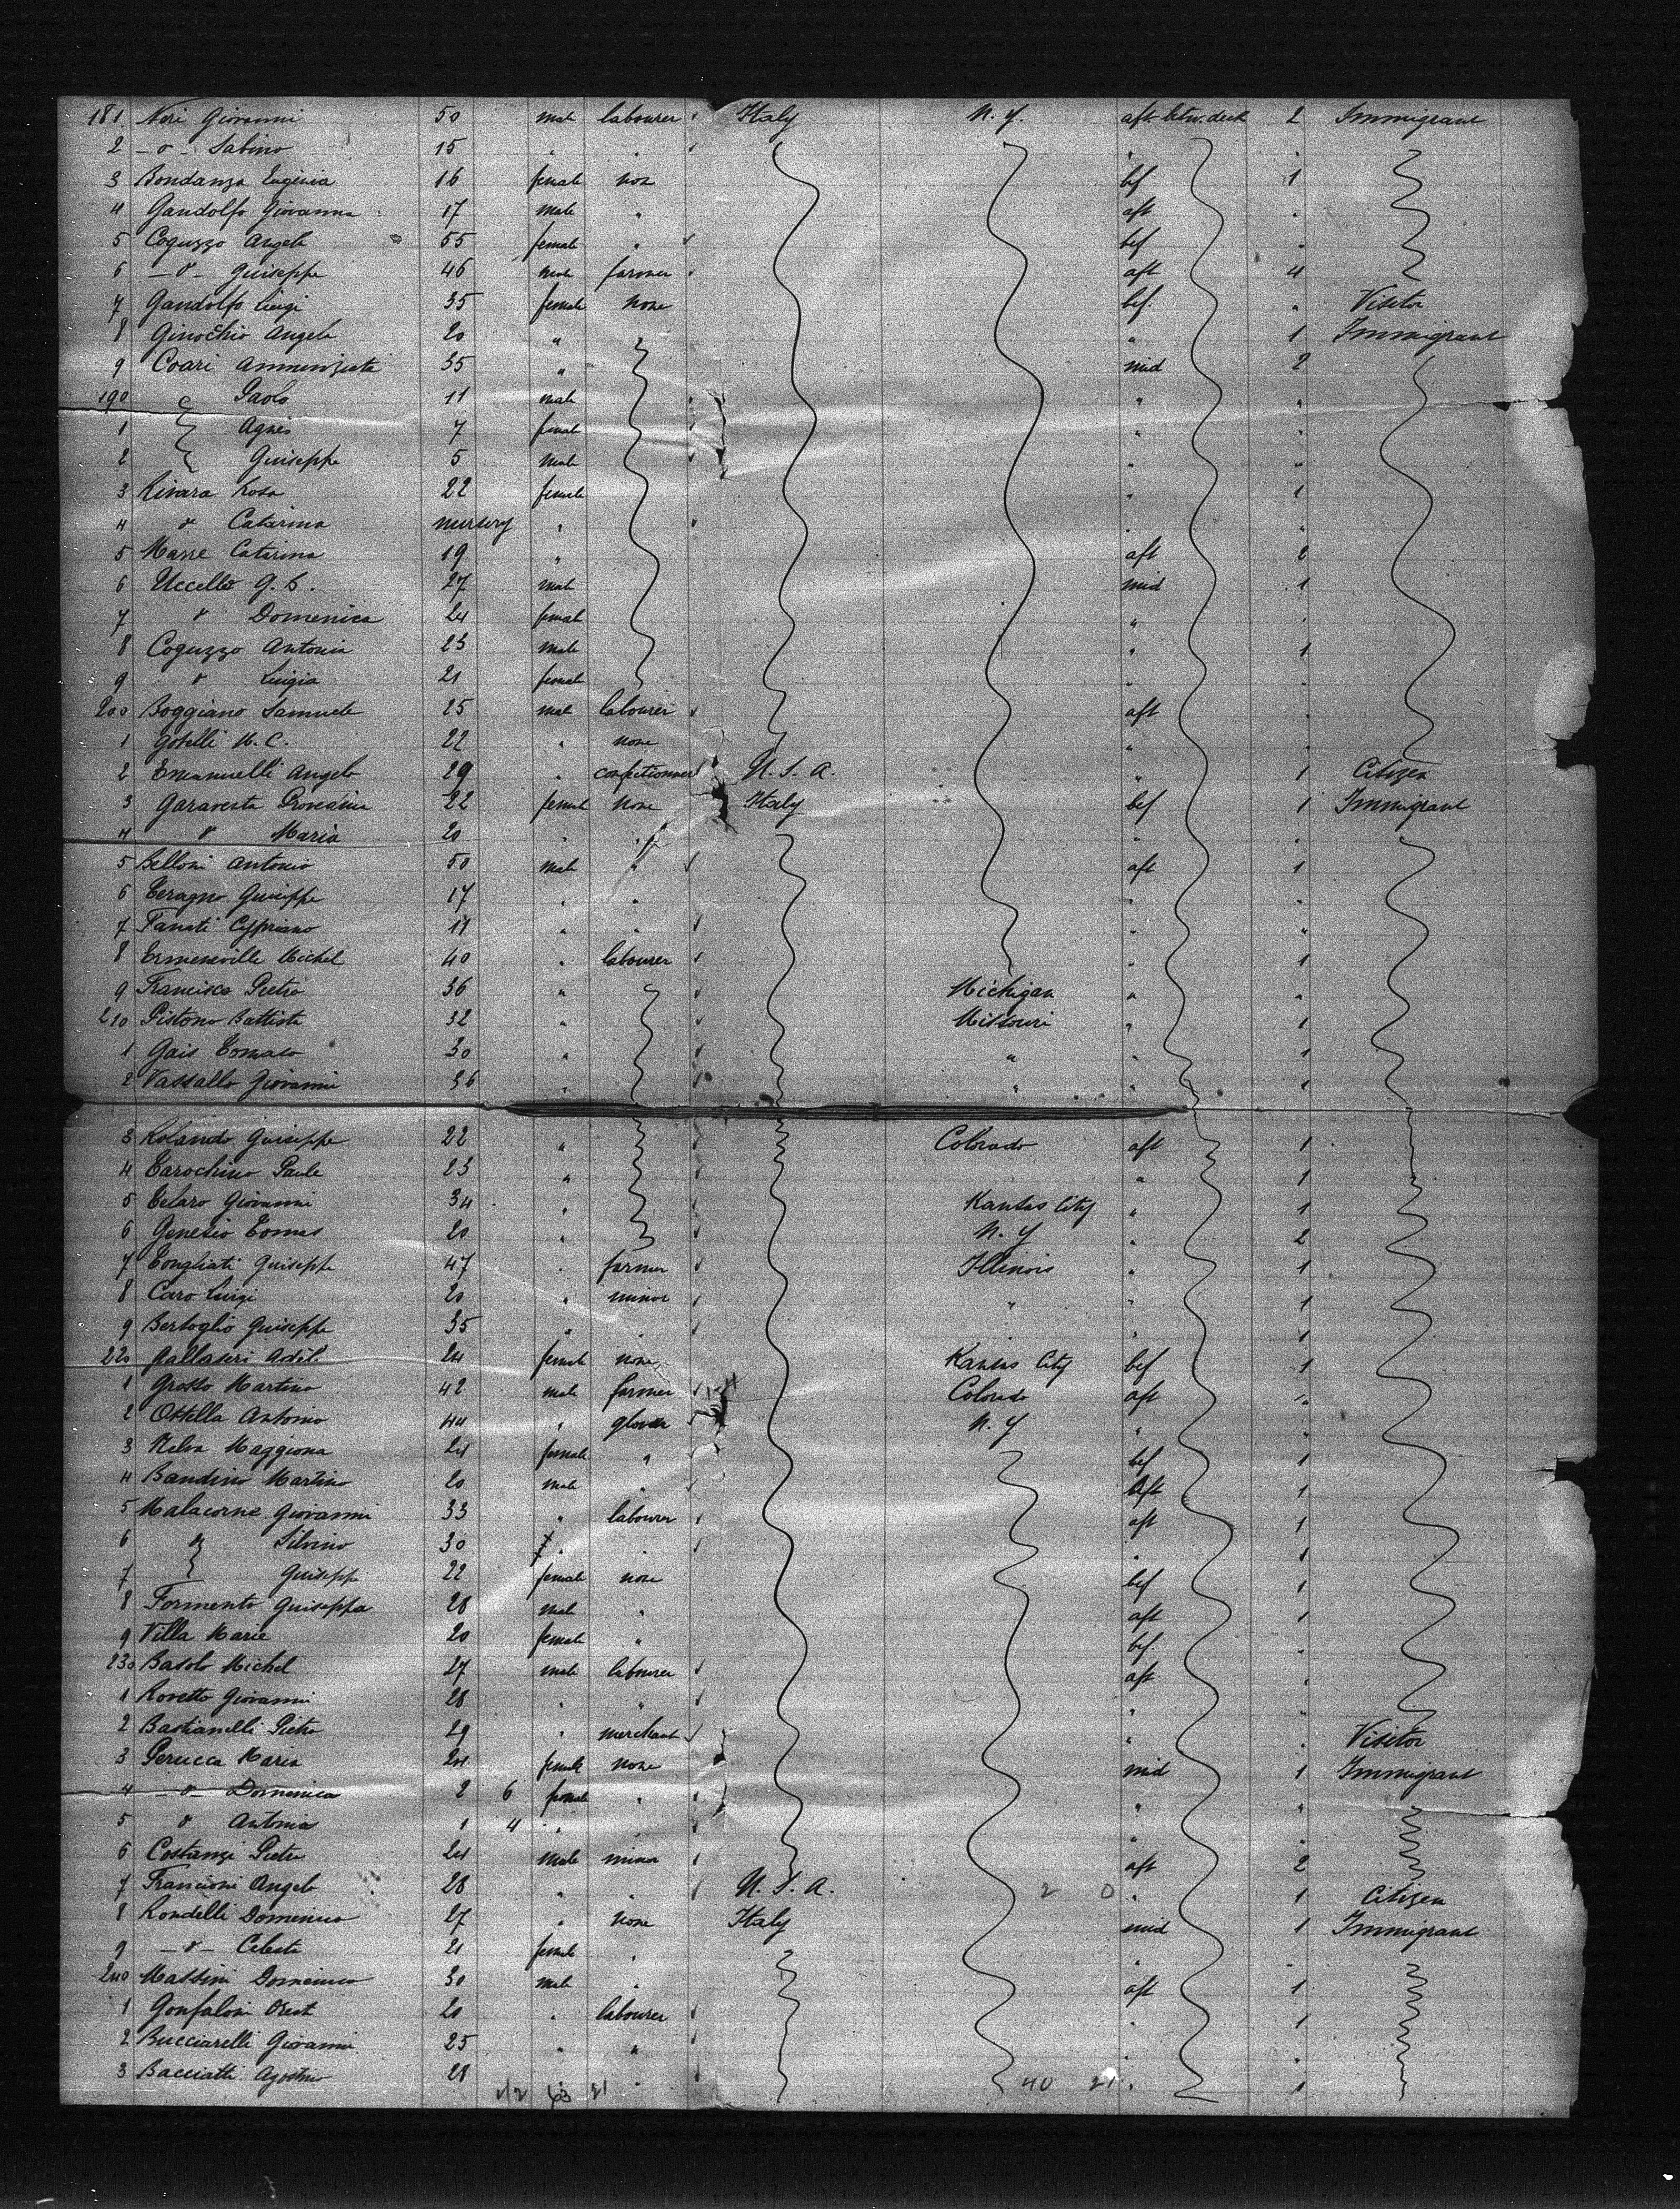 181 Neri Giovanni 50 male labourer Italy N. Y. aft. betw. deck 2 Immigrant
2 -o- Sabino 15 " "
3 Bondanza Eugenia 16 female none bef 1
4 Gandolfo Giovanna 17 male " aft "
5 Coguzzo Angela 55 female " bef "
6 -o- Guiseppe 46 male farmer aft 4
7 Gandolfo Luigi 35 female none bef. " Visitor
8 Ginochio Angela 20 " " 1 Immigrant
9 Coari Annunziata 35 " mid 2
190 Paolo 11 male " "
1 Agnes 7 female " "
2 Guiseppe 5 male " "
3 Rivara Rosa 22 female " 1
4 o Catarina nursery " " "
5 Marre Catarina 19 " aft 2
6 Uccello G. B. 27 male mid 1
7 o Domenica 24 female " "
8 Coguzzo Antonia 23 male " 1
9 o Luigia 21 female " "
200 Boggiano Samuele 25 male labourer aft "
1 Gotelli M. C. 22 " none " "
2 Emanuelli Angelo 29 " confectioner U. S. A. " 1 Citizen
3 Garaventa 22 female none Italy bef 1 Immigrant
4 o Maria 20 " " " "
5 Belloni Antonio 50 male " aft 1
6 Teragno Guiseppe 17 " " " "
7 Fanati Cypriano 11 " " " "
8 Michel 40 " labourer " 1
9 Francisco Pietro 36 " Michigan " "
210 Pistono Battista 32 " Missouri " 1
1 Gais Tomaso 30 " " " 1
2 Vassallo Giovanni 36 " " " 1
3 Rolando Guiseppe 22 " Colorado aft 1
4 Tarochino Paule 23 " " 1
5 Celaro Giovanni 34 " Kansas City " 1
6 Genesio Tomas 20 " N. Y " 2
7 Guiseppe 47 " farmer Illinois " 1
8 Caro Luigi 20 " minor " " 1
9 Bertoglio Guiseppe 35 " " " " 1
220 Adel. 24 female none Kansas City bef 1
1 Grosso Martino 42 male farmer Colorado aft "
2 Ottella Antonio 44 " N. Y " "
3 Maggiona 24 female " bef 1
4 Bandino Martino 20 male " Aft 1
5 Malacorne Giovanni 33 " labourer aft 1
6 " Silvino 30 " " " 1
7 Guiseppe 22 female none bef 1
8 Formento Guiseppa 28 male " aft 1
9 Villa Marie 20 female " bef. "
230 Basolo Michel 27 male labourer aft "
1 Rovetto Giovanni 28 " " " "
2 Bastianelli Pietro 29 " merchant " " Visitor
3 Perucca Maria 24 female none mid 1 Immigrant
4 -o- Domenica 2 6 female " " "
5 o Antonia 1 4 " " " "
6 Costanzi Pietro 24 male minor aft 2
7 Francioni Angelo 28 " " U. S. A. 2 0 " 1 Citizen
8 Rondelli Domenico 27 " none Italy mid 1 Immigrant
9 -o- Celesta 21 female " " "
240 Massini Domenico 30 male " aft 1
1 Gonfaloni Orest 20 " labourer " 1
2 Bucciarelli Giovanni 25 " " " "
3 Bacciatti Agostino 28 " " " 1
63 21 40 21